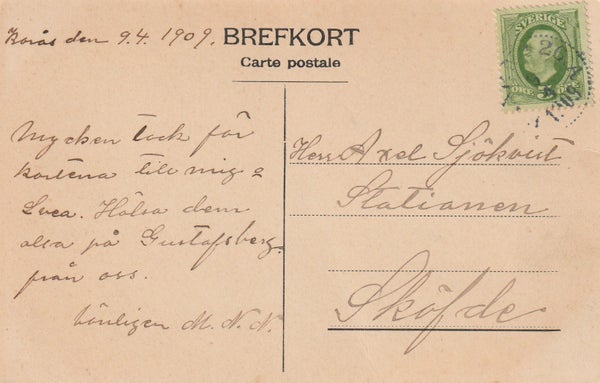 Borås den 9.4. 1909.
BREFKORT
Carte postale
SVERIGE
5 ÖRE
Mycken tack för
kortena till mig o
Svea. Hälsa dem
alla på Gustafsberg
från oss.
Vänligen M. N. N.
Herr Axel Sjökvist
Stationen
Sköfde